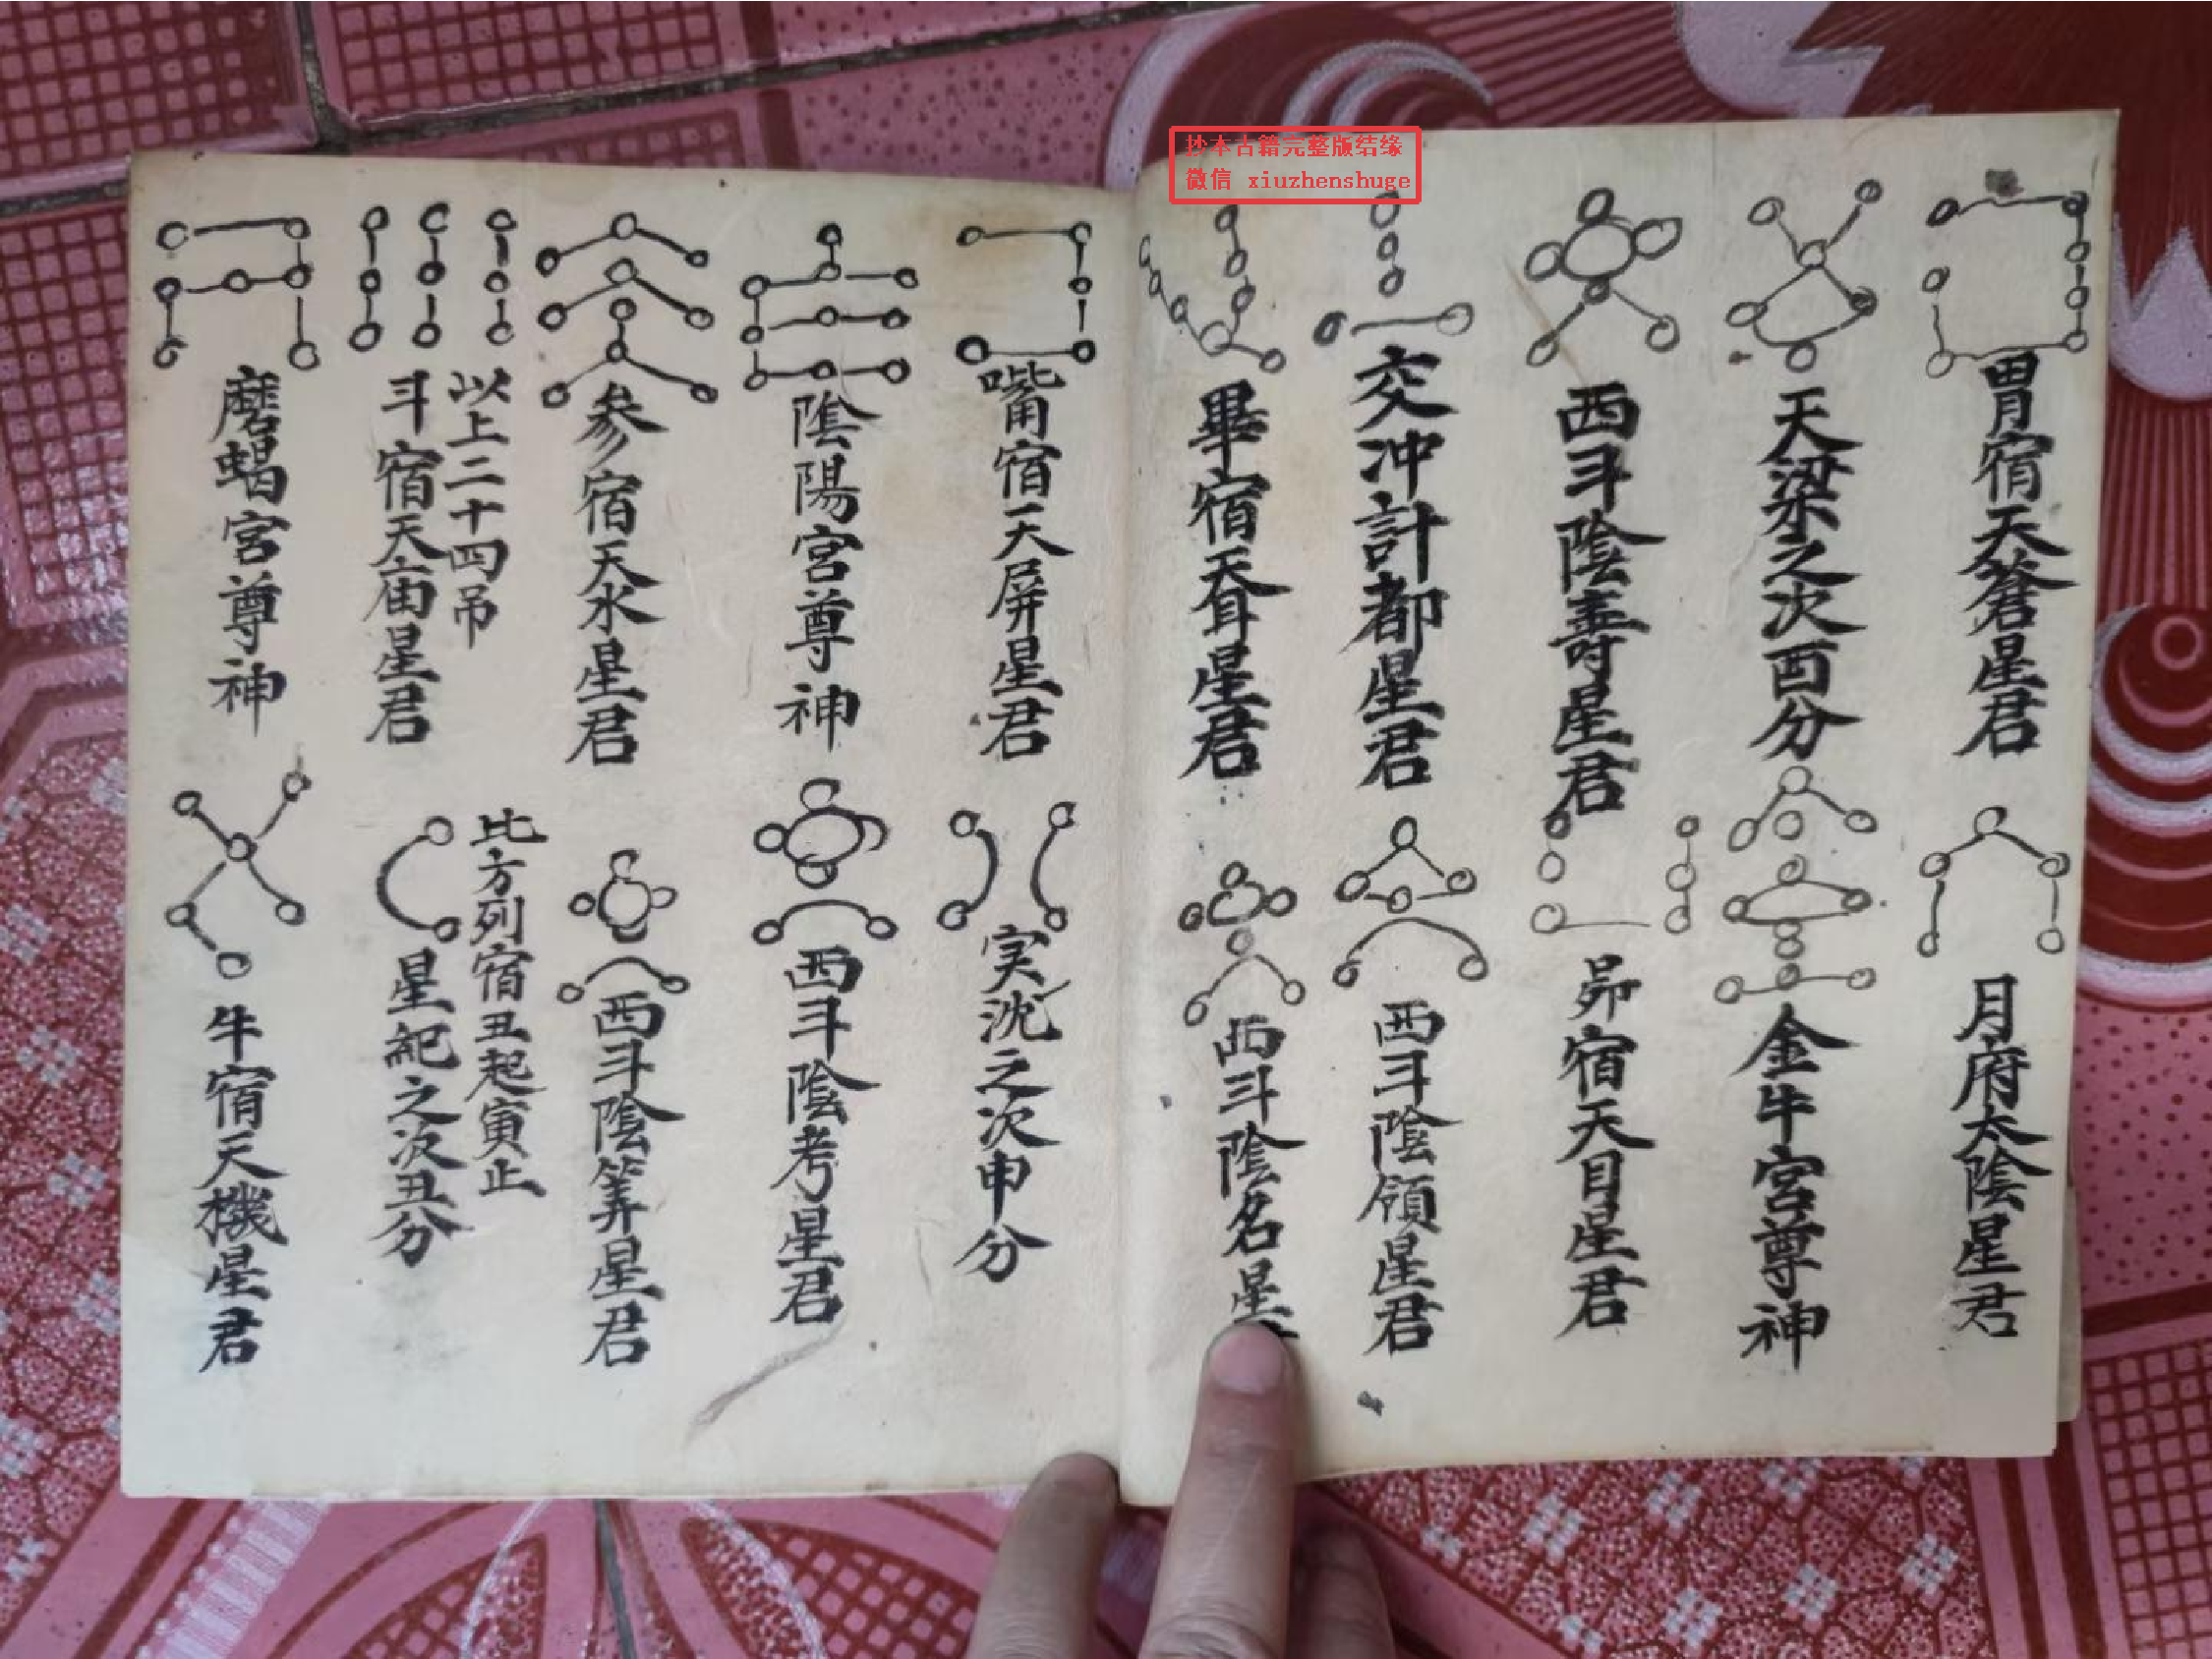 抄本古籍完整版结缘
微信 xiuzhenshuge
胃宿天蒼星君
月府太陰星君
天梁之次酉分
金牛宮尊神
西斗陰壽星君
昴宿天目星君
交冲計都星君
西斗陰領星君
畢宿天耳星君
西斗陰名星
嘴宿天屏星君
实沈之次申分
陰陽宮尊神
西斗陰考星君
參宿天水星君
西斗陰筭星君
以上二十四吊
比方列宿丑起寅止
斗宿天庙星君
星紀之次丑分
磨蝎宮尊神
牛宿天機星君